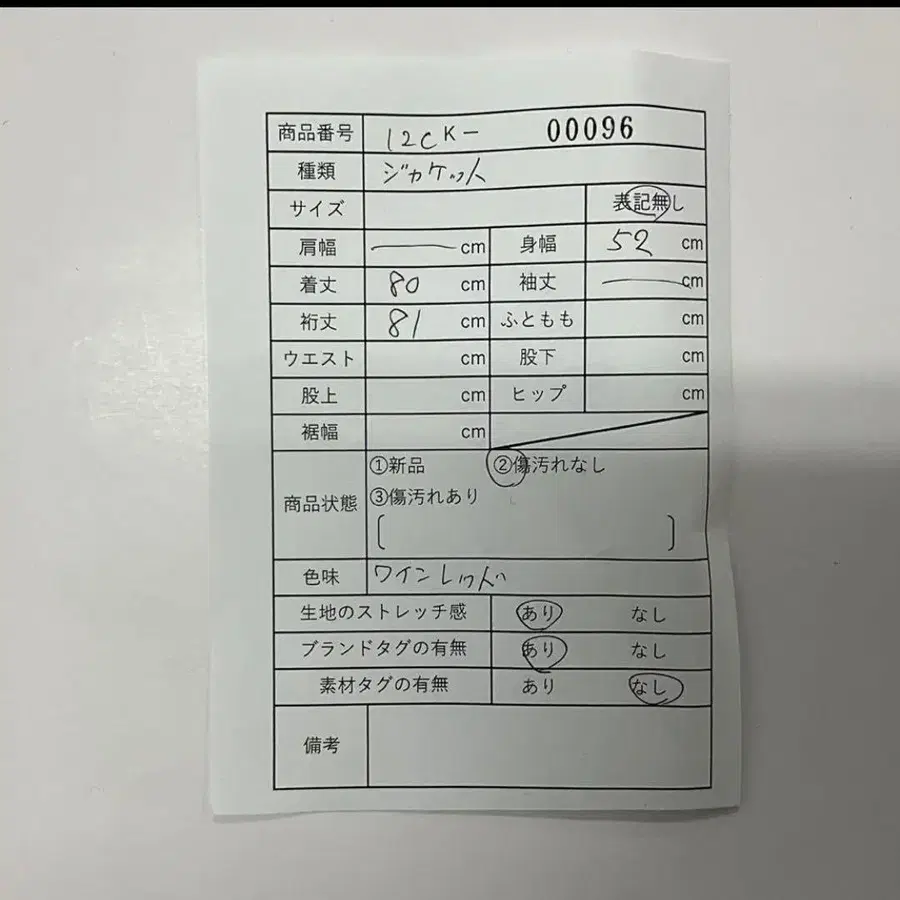 商品番号 12CK− 00096
種類 ジャケット
サイズ 表記無し
肩幅 — cm 身幅 52 cm
着丈 80 cm 袖丈 — cm
裄丈 81 cm ふともも cm
ウエスト cm 股下 cm
股上 cm ヒップ cm
裾幅 cm
①新品 ②傷汚れなし
商品状態 ③傷汚れあり
[ ]
色味 ワインレッド
生地のストレッチ感 あり なし
ブランドタグの有無 あり なし
素材タグの有無 あり なし
備考